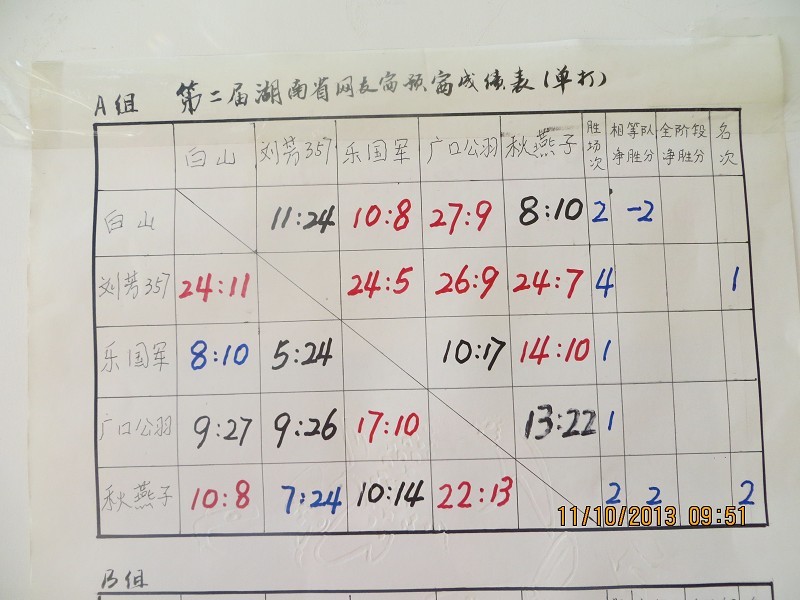 A组 第二届湖南省网友窗预窗成绩表(单打)
白山 刘芳357 乐国军 广口公羽 秋燕子 胜场次 相等队净胜分 全阶段净胜分 名次
白山 11:24 10:8 27:9 8:10 2 -2
刘芳357 24:11 24:5 26:9 24:7 4 1
乐国军 8:10 5:24 10:17 14:10 1
广口公羽 9:27 9:26 17:10 13:22 1
秋燕子 10:8 7:24 10:14 22:13 2 2 2
11/10/2013 09:51
B组